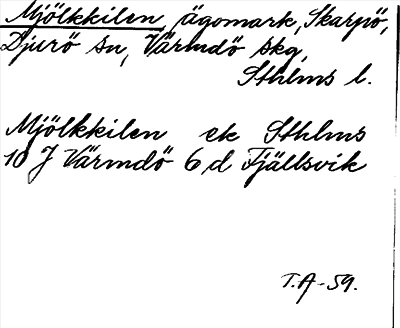 Mjölkkilen, ägomark, Skarpö,
Djurö sn, Värmdö skg,
Sthlms l.
Mjölkkilen ek Sthlms
10 J Värmdö 6 d Fjällsvik
T.A-59.